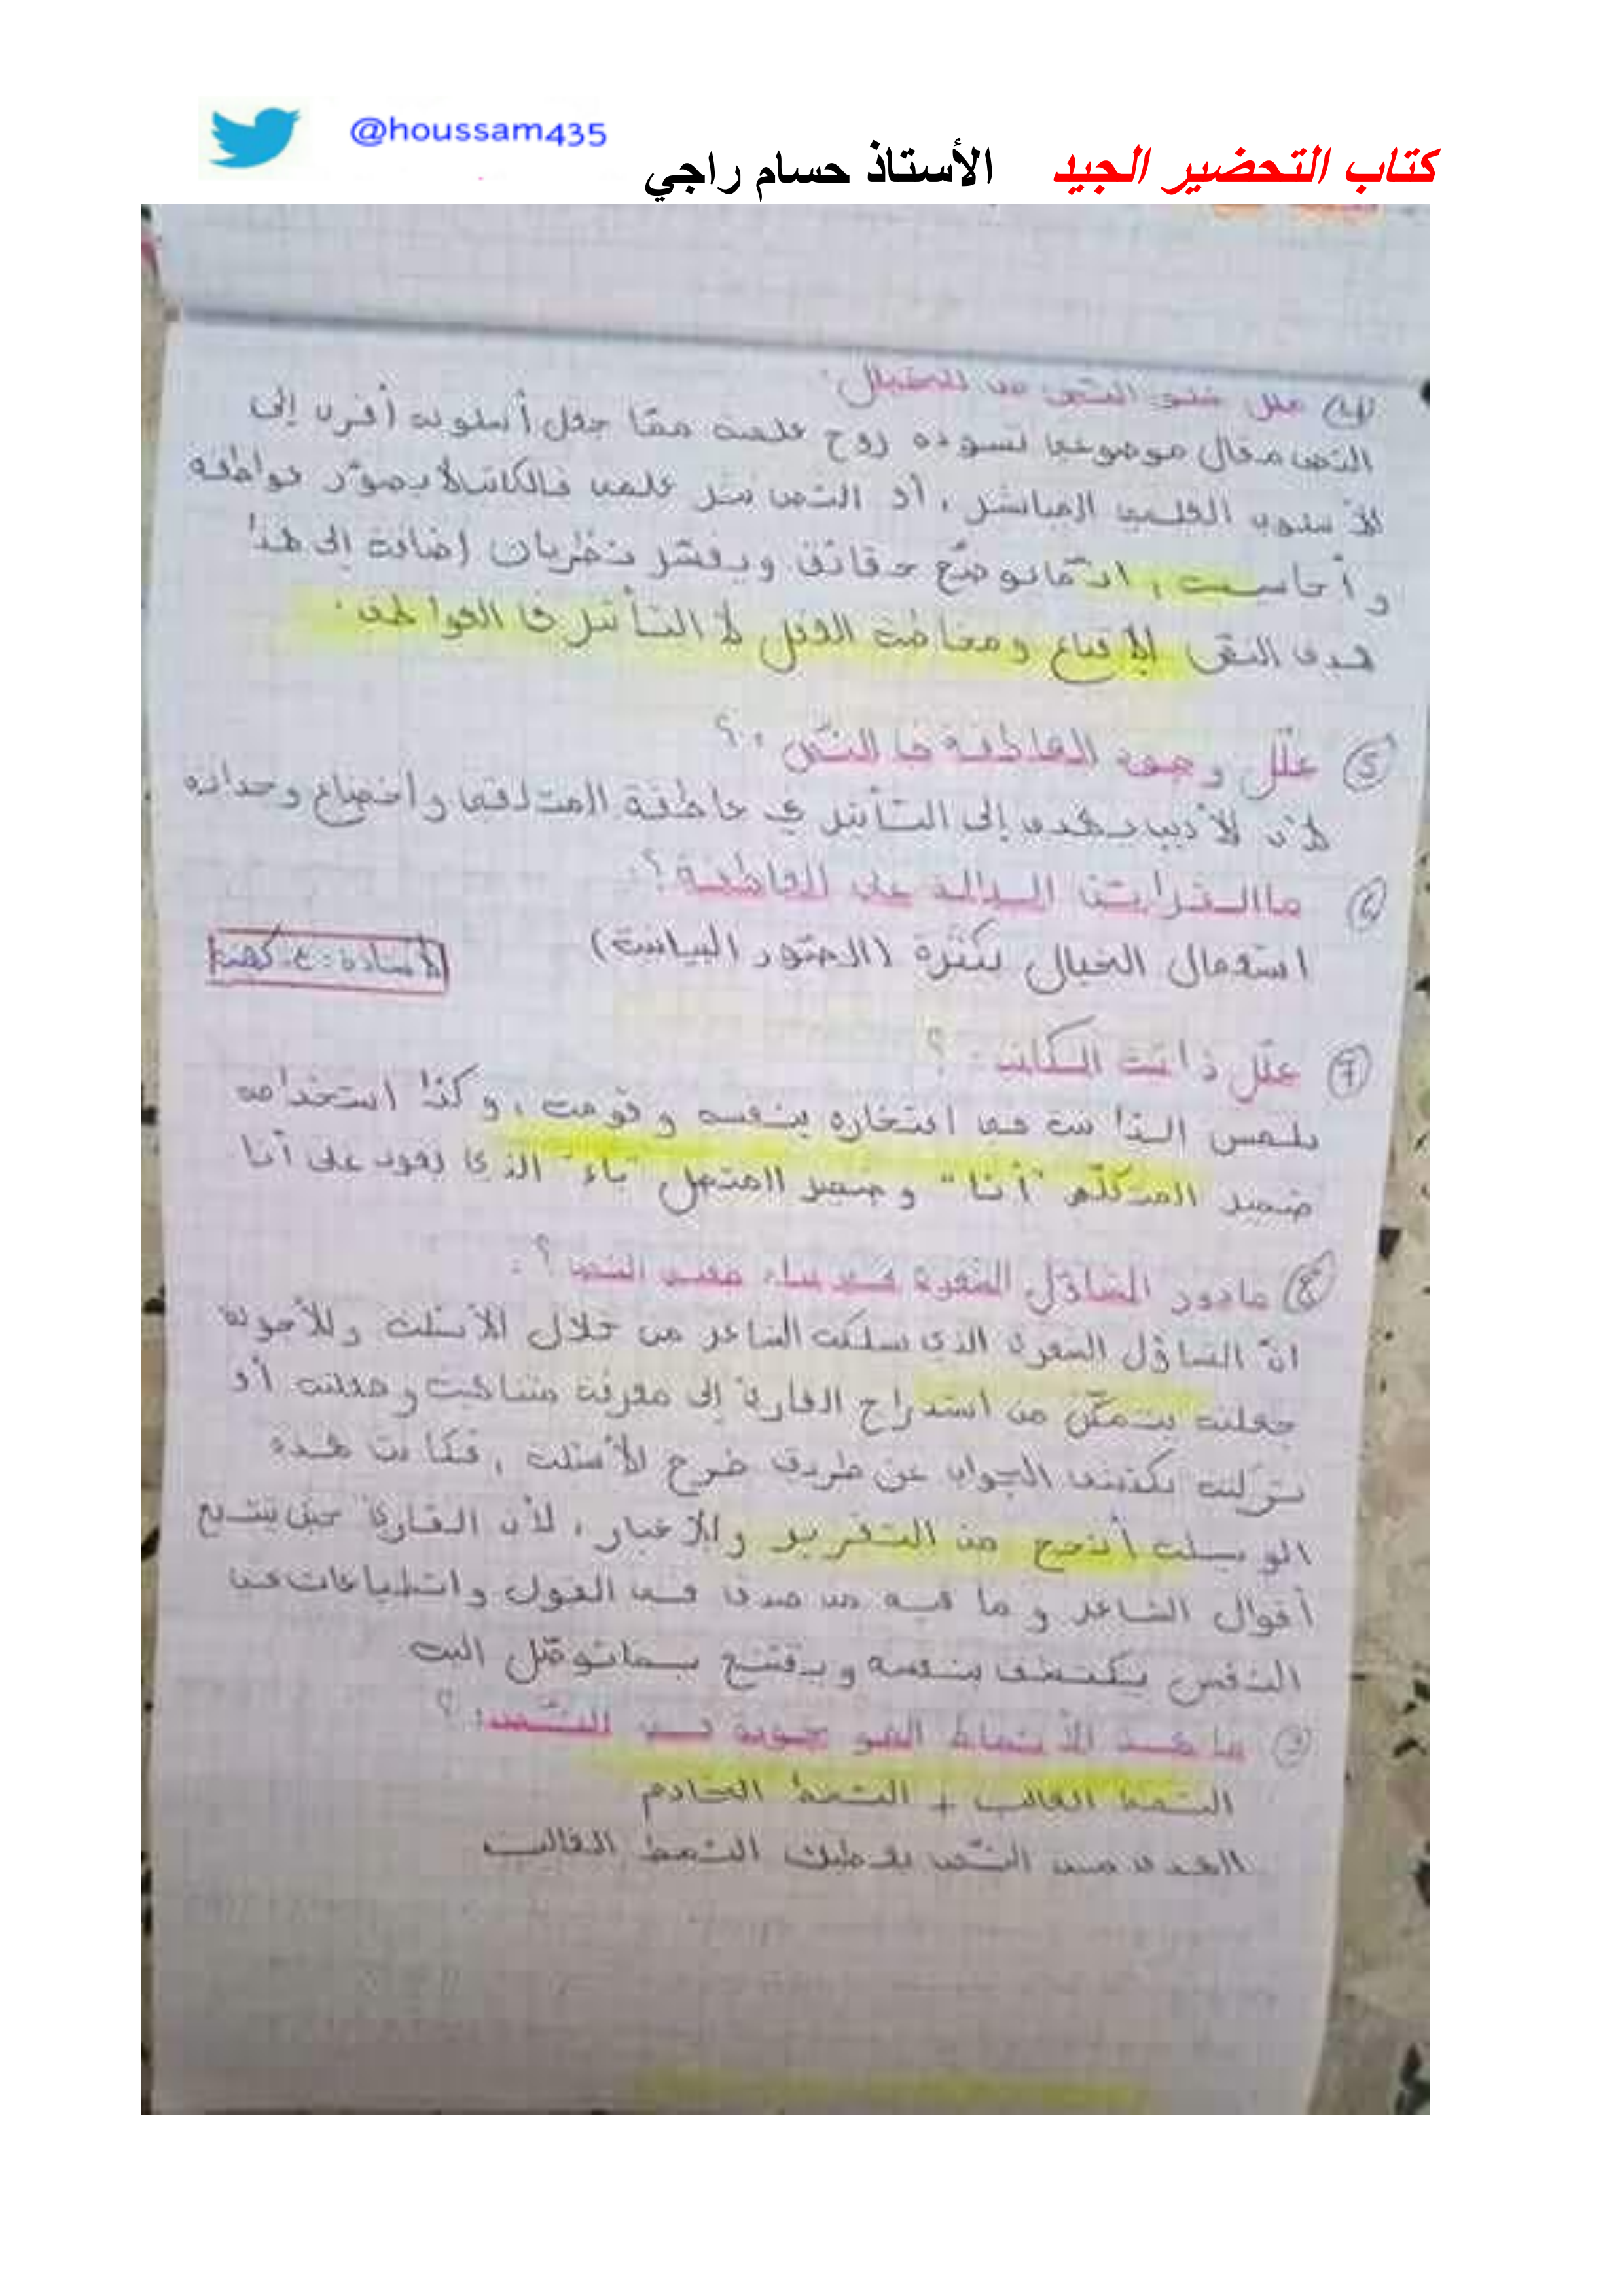 @houssam435
كتاب التحضير الجيد الأستاذ حسام راجي
④ علل خلو النص من الخيال.
النص مقال موضوعي تسوده روح علمية ممّا جعل أسلوبه أقرب إلى
الأسلوب العلمي المباشر، أد النص نثر علمي فالكاتب لا يصوّر عواطفه
و أحاسيسه، انّما يوضّح حقائق ويفسّر نظريات إضافة إلى هذا
هدف النصّ الإقناع ومخاطبة العقل لا التأثير في العواطف.
⑤ علّل وجود العاطفة في النصّ؟
لأن الأديب يهدف إلى التأثير في عاطفة المتلقي وأخضاع وجدانه
⑥ ما القرائن الدالة على العاطفة؟
استعمال الخيال بكثرة (الصّور البيانية)
الأستاذة: ع.
⑦ علّل ذاتية الكاتب؟
نلمس الذاتية في افتخاره بنفسه و قومه، وكذا استخدامه
ضمير المتكلّم "أنا" و ضمير المتصل "ياء" الذي يعود على أنا
⑧ ما دور التساؤل الشعري في بناء معنى النص؟
انّ التساؤل الشعري الذي سلكه الشاعر من خلال الأسئلة والأجوبة
جعلته يتمكّن من استدراج القارئ إلى معرفة
الجواب عن طريق طرح الأسئلة، فكانت هذه
الوسيلة أنجح من التقرير والإخبار، لأن القارئ حين يتتبع
أقوال الشاعر و ما فيه من صدق في القول وانطباعات في
النفس يكتشف بنفسه ويقتنع بما توصّل اليه
⑨ ما هي الأنماط الموجودة في النّص؟
النمط الغالب + النمط الخادم
الهدف من النّص يعطيك النمط الغالب